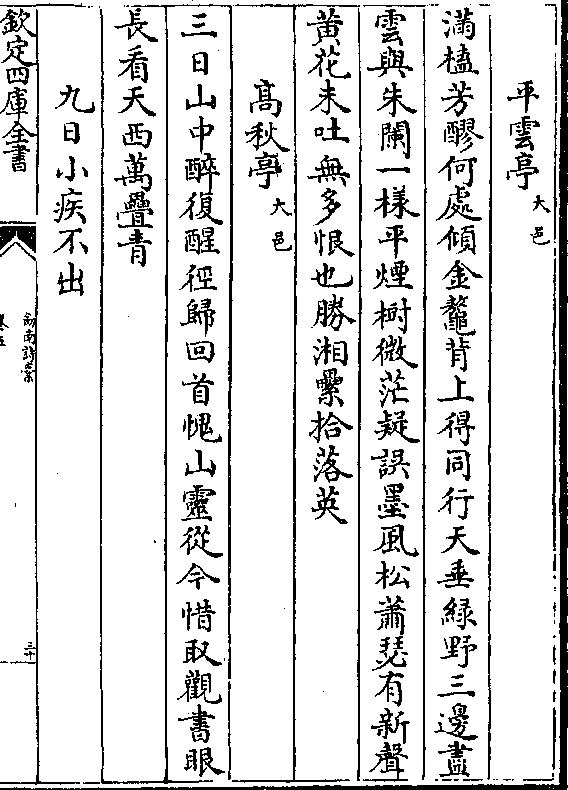 平雲亭大邑
滿榼芳醪何處傾金鼇背上得同行天垂緑野三邊盡
雲與朱闌一様平煙樹微茫疑誤墨風松蕭瑟有新聲
黄花未吐無多恨也勝湘纍拾落英
髙秋亭大邑
三日山中醉復醒徑歸回首愧山靈從今惜取觀書眼
長看天西萬疊青
九日小疾不出
欽定四庫全書
劒南詩藁
卷五
三十